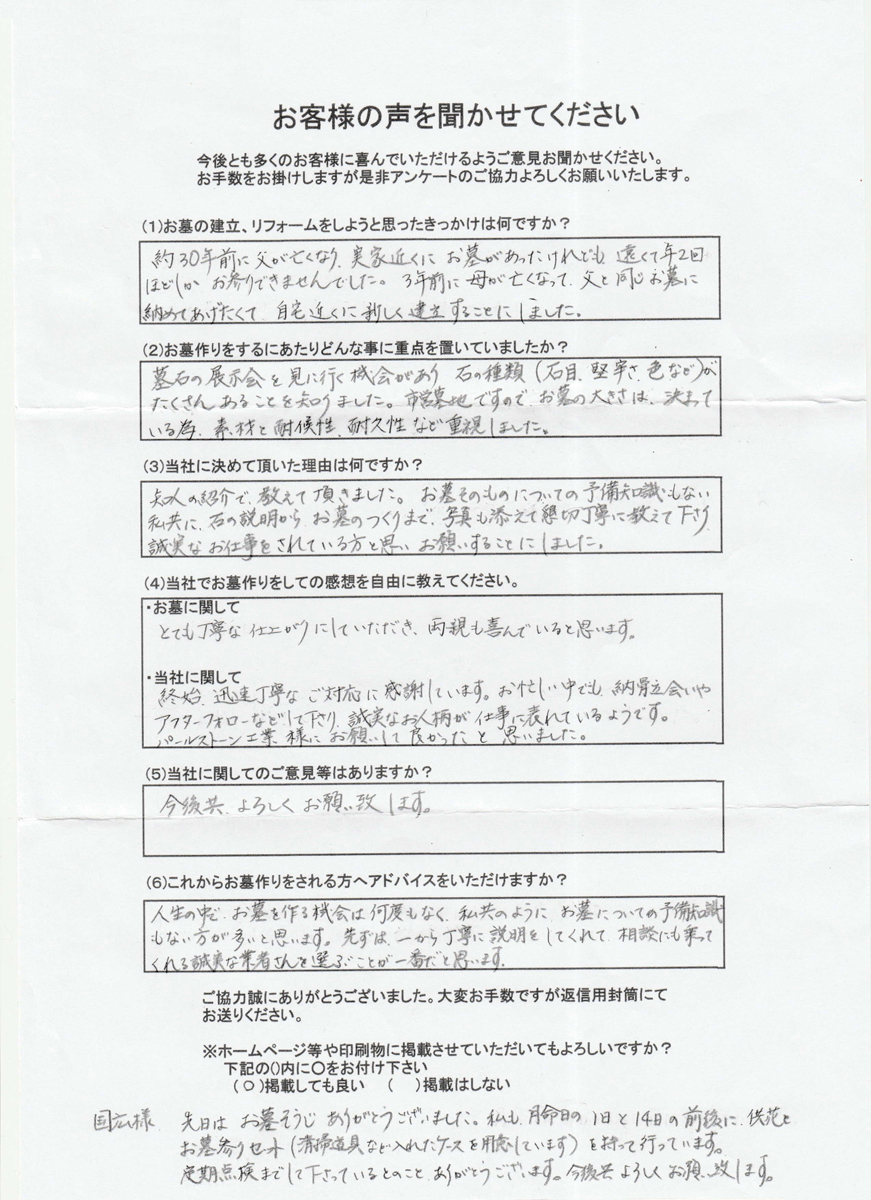 お客様の声を聞かせてください
今後とも多くのお客様に喜んでいただけるようご意見お聞かせください。
お手数をお掛けしますが是非アンケートのご協力よろしくお願いいたします。
(1)お墓の建立、リフォームをしようと思ったきっかけは何ですか？
約30年前に父が亡くなり、実家近くに お墓があったけれども、遠くて年2回
ほどしか お参りできませんでした。3年前に母が亡くなって、父と同じお墓に
納めてあげたくて、自宅近くに新しく建立することにしました。
(2)お墓作りをするにあたりどんな事に重点を置いていましたか？
墓石の展示会を見に行く機会があり 石の種類(石目、堅牢さ、色など)が
たくさん あることを知りました。市営墓地ですので、お墓の大きさは、決まって
いる為、素材と耐候性、耐久性など重視しました。
(3)当社に決めて頂いた理由は何ですか？
知人の紹介で、教えて頂きました。お墓そのものについての予備知識もない
私共に、石の説明から お墓のつくりまで、写真も添えて懇切丁寧に教えて下さり
誠実なお仕事をされている方と思い お願いすることにしました。
(4)当社でお墓作りをしての感想を自由に教えてください。
・お墓に関して
とても丁寧な仕上がりにしていただき、両親も喜んでいると思います。
・当社に関して
終始、迅速丁寧なご対応に感謝しています。お忙しい中でも、納骨立会いや
アフターフォローなどして下さり、誠実なお人柄が仕事に表れているようです。
パールストーン工業様にお願いして良かったと思いました。
(5)当社に関してのご意見等はありますか？
今後共、よろしくお願い致します。
(6)これからお墓作りをされる方へアドバイスをいただけますか？
人生の中で、お墓を作る機会は何度もなく、私共のように、お墓についての予備知識
もない方が多いと思います。先ずは、一から丁寧に説明をしてくれて、相談にも乗って
くれる誠実な業者さんを選ぶことが一番だと思います。
ご協力誠にありがとうございました。大変お手数ですが返信用封筒にて
お送りください。
※ホームページ等や印刷物に掲載させていただいてもよろしいですか？
下記の()内に〇をお付け下さい
(○)掲載しても良い ( )掲載はしない
国広様 先日は お墓そうじ ありがとうございました。私も、月命日の1日と14日の前後に、供花と
お墓参りセット(清掃道具など入れたケースを用意しています)を持って行っています。
定期点検までして下さっているとのこと、ありがとうございます。今後共よろしくお願い致します。